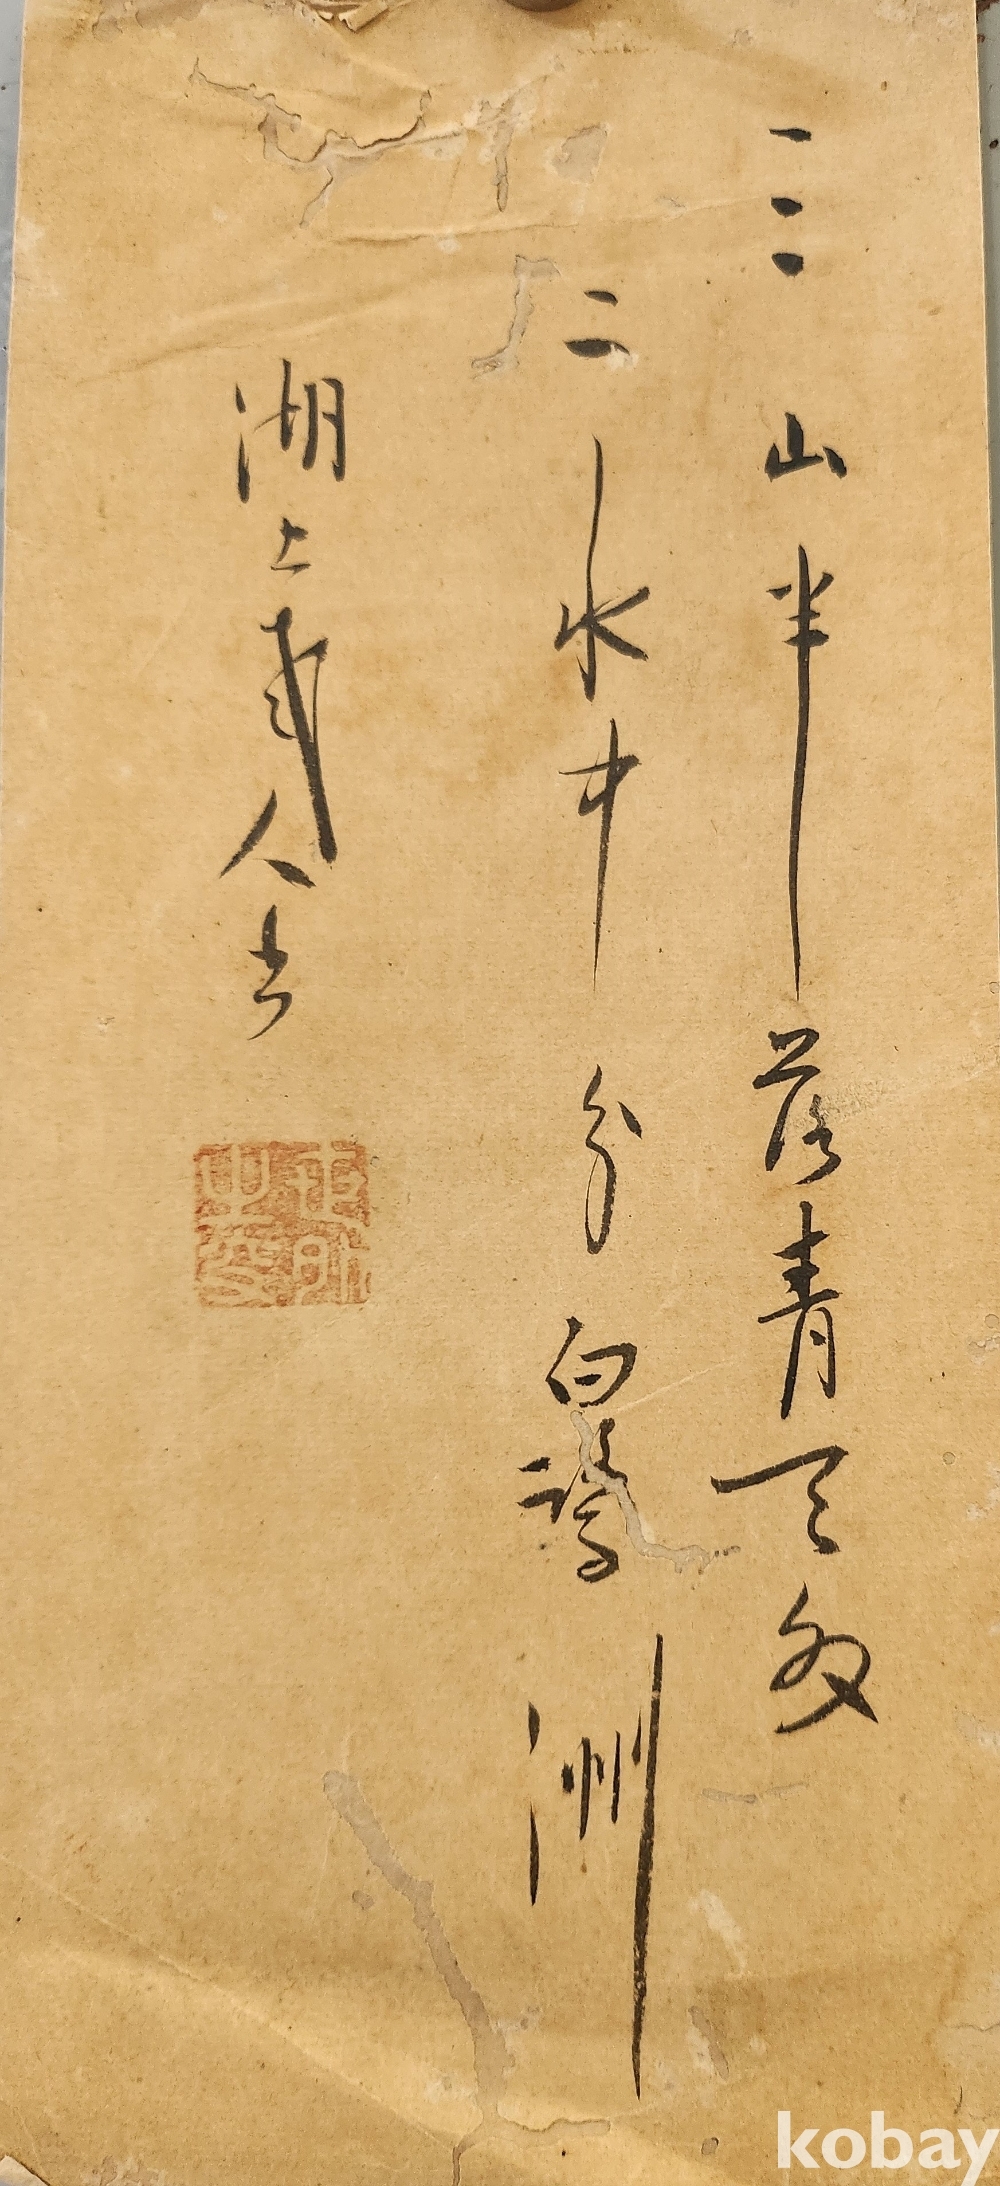 三山半落青天外
二水中分白鷺洲
湖上
人書
kobay